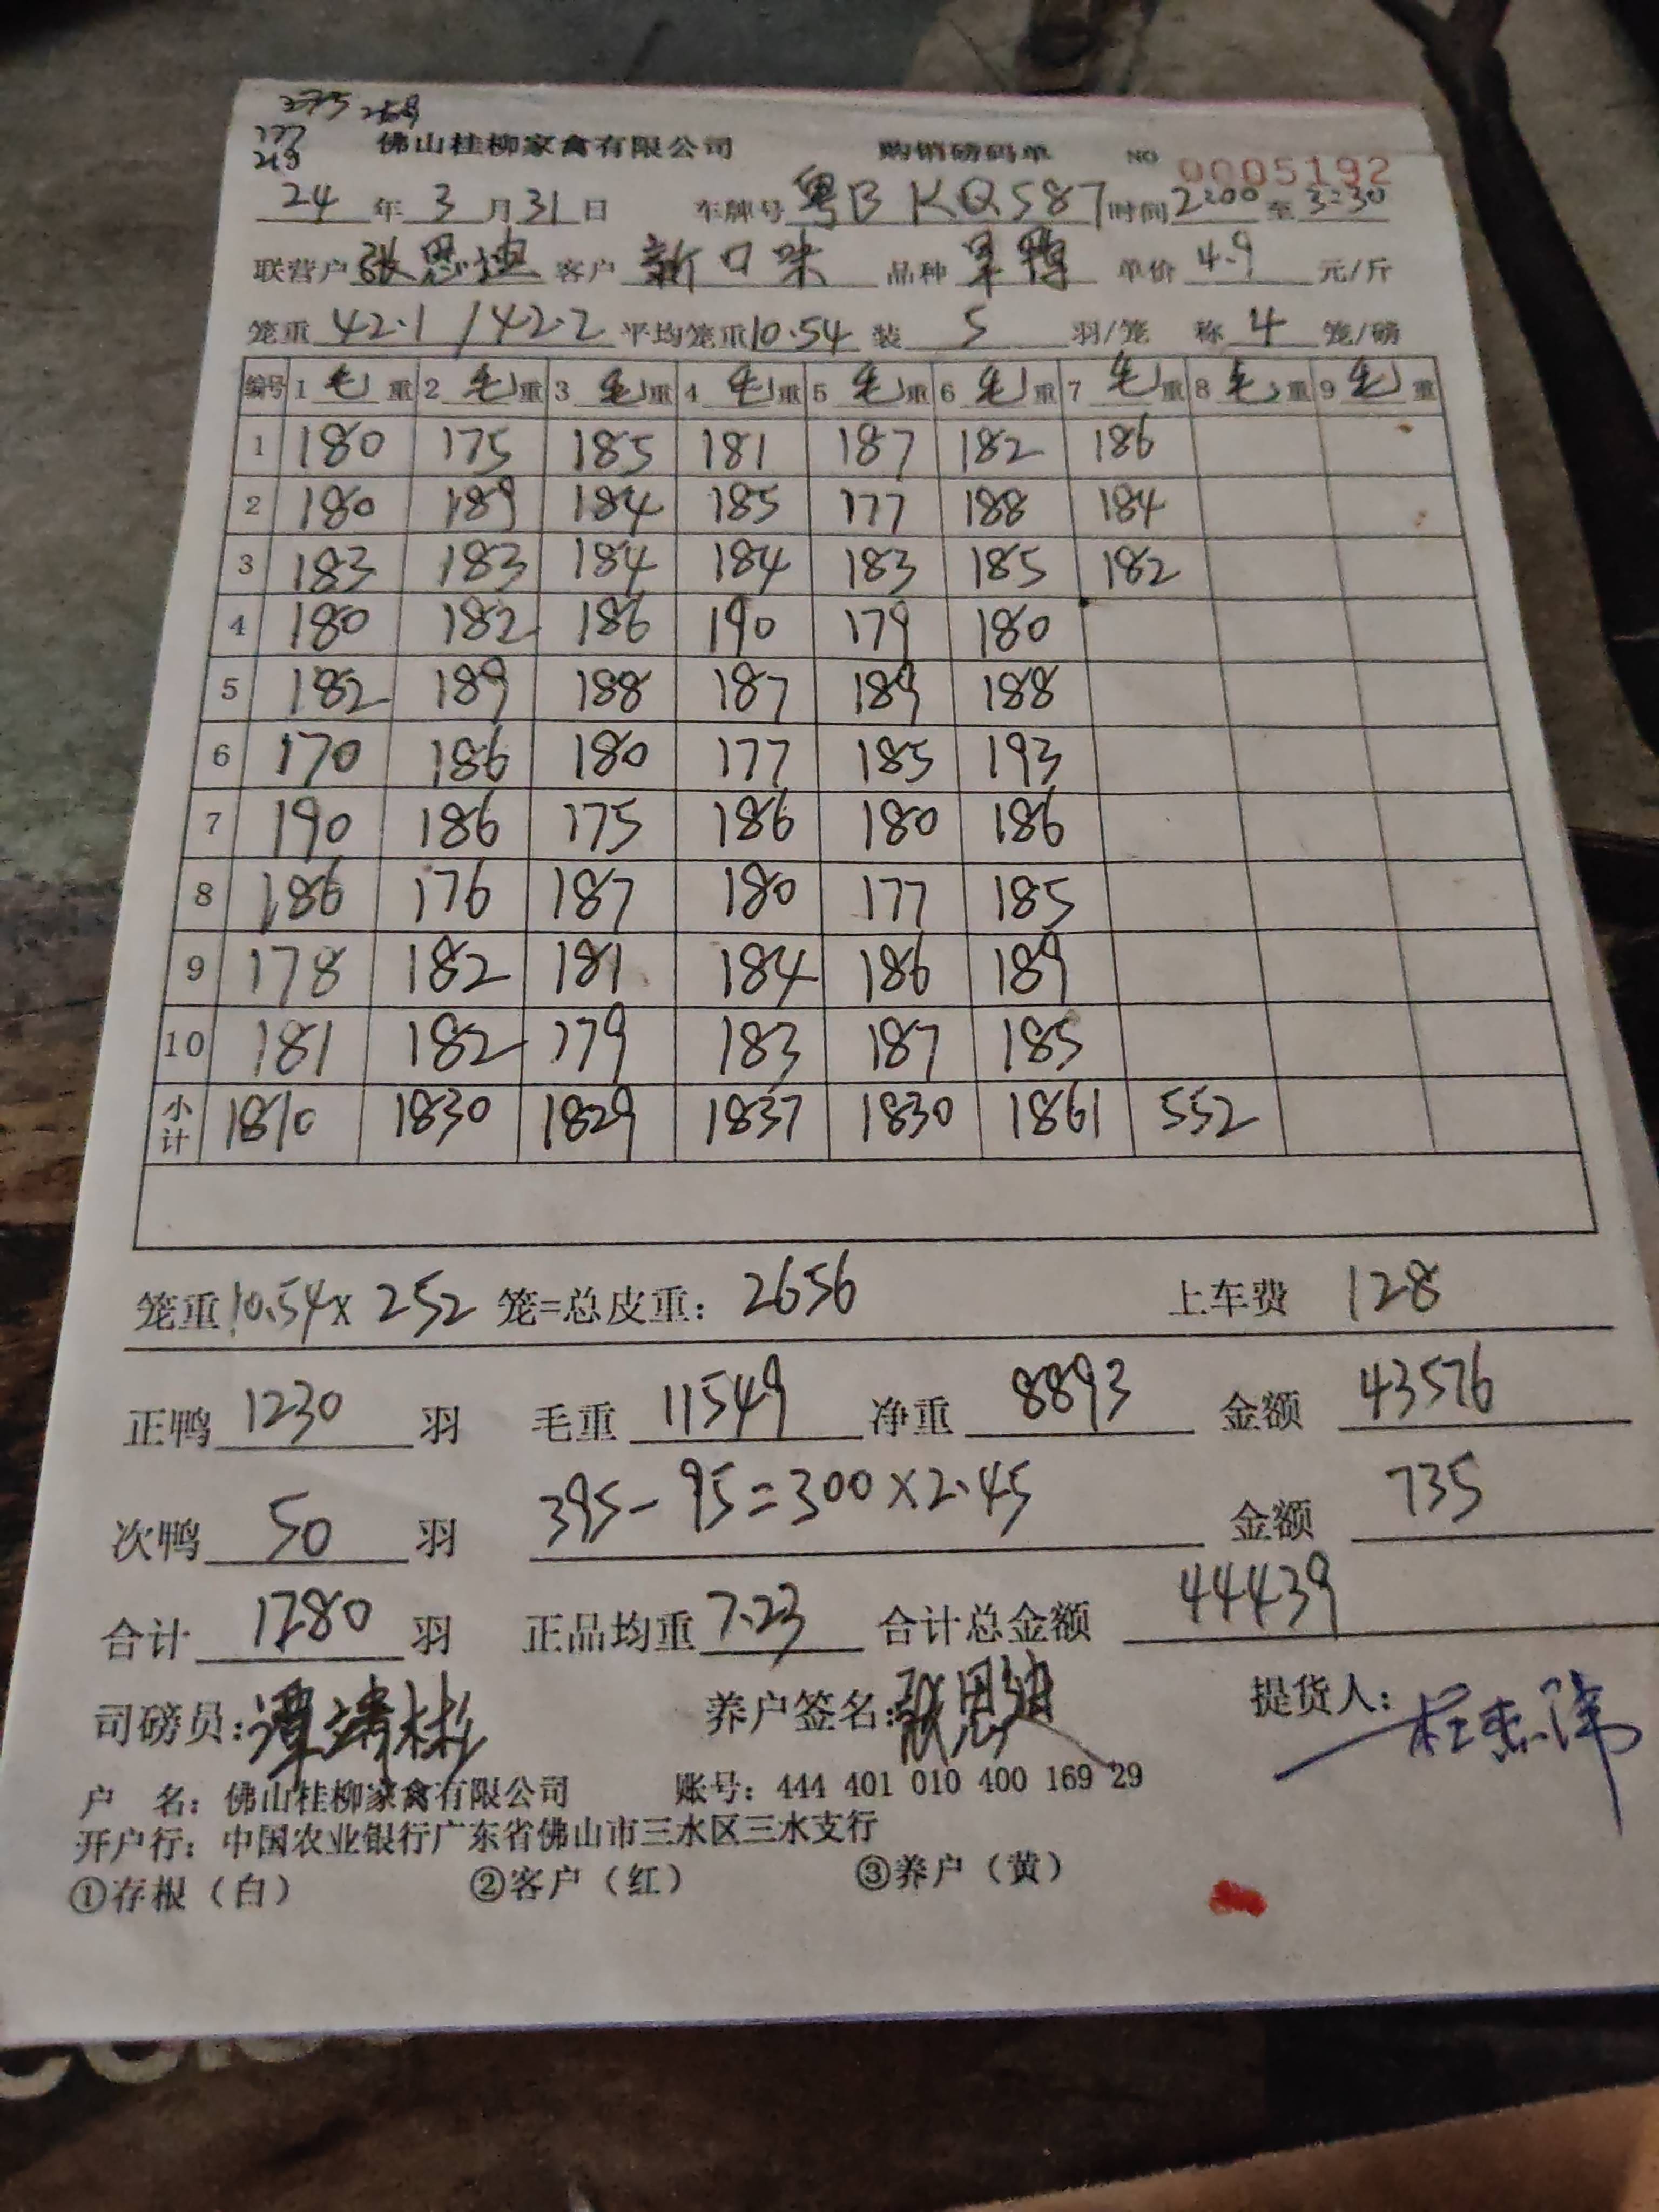 275 268
177
219
佛山桂柳家禽有限公司 购销磅码单 NO 0005192
24 年 3 月 31 日 车牌号 粤B KQ587 时间 2:00 至 3:30
联营户 张思迪 客户 新口味 品种 单价 4.9 元/斤
笼重 42.1 / 42.2 平均笼重 10.54 装 5 羽/笼 称 4 笼/磅
编号 1 毛 重 2 毛 重 3 毛 重 4 毛 重 5 毛 重 6 毛 重 7 毛 重 8 毛 重 9 毛 重
1 180 175 185 181 187 182 186
2 180 189 184 185 177 188 184
3 183 183 184 184 183 185 182
4 180 182 186 190 179 180
5 182 189 188 187 189 188
6 170 186 180 177 185 193
7 190 186 175 186 180 186
8 186 176 187 180 177 185
9 178 182 181 184 186 189
10 181 182 179 183 187 185
小计 1810 1830 1829 1837 1830 1861 552
笼重 10.54 x 252 笼=总皮重: 2656 上车费 128
正鸭 1230 羽 毛重 11549 净重 8893 金额 43576
次鸭 50 羽 395-95=300×2.45 金额 735
合计 1280 羽 正品均重 7.23 合计总金额 44439
司磅员: 谭靖彬 养户签名: 张思迪 提货人:
户 名: 佛山桂柳家禽有限公司 账号: 444 401 010 400 169 29
开户行: 中国农业银行广东省佛山市三水区三水支行
①存根(白) ②客户(红) ③养户(黄)